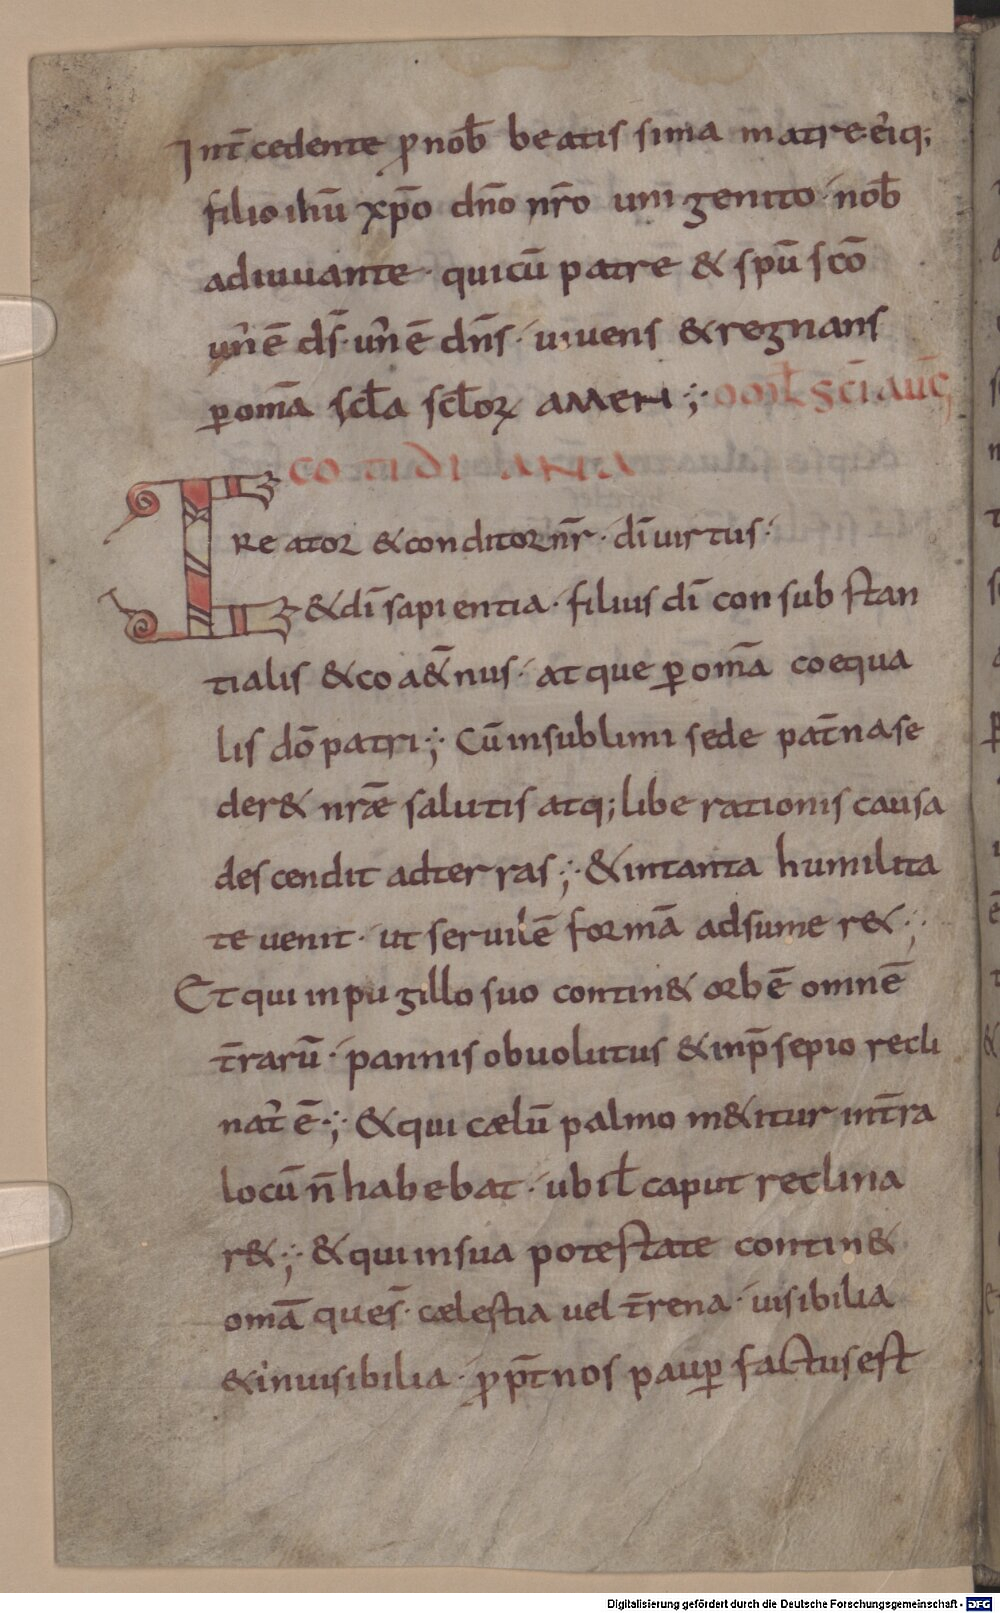 Int̄cedente ꝓnob̄ beatissima matre ei'q;
filio ihū xp̄o dn̄o nr̄o unigenito · nob̄
adiuuante · quicū patre & sp̄u sc̄o
un' ē ds̄ · un' ē dn̄s · uiuens & regnans
ꝑ om̄a scl̄a scl̄oꝝ AMEN ;· OMIL̄ SCI AUḠ
COTIDIANA
CReator & conditor nr̄ · dī uirtus ·
& dī sapientia · filius dī consubstan
tialis & coa&̄nus · atque ꝑ om̄a coequa
lis dō patri ;· Cū insublimi sede pat̄na se
der& nr̄ae salutis atq; liberationis causa
descendit ad terras ;· & intanta humilita
te uenit · ut seruilē formā adsumer& ;·
Et qui inpugillo suo contin& orbē omnē
t̄rarū · pannis obuolutus & inp̄sepio recli
nat' ē ;· & qui cælū palmo m&itur int̄ra
locū n̄ habebat · ubil̄ caput reclina
r& ;· & qui insua potestate contin&
om̄a ques̄ · cælestia uel t̄rena · uisibilia
& inuisibilia · ꝓpt̄ nos pauꝑ factus est
Digitalisierung gefördert durch die Deutsche Forschungsgemeinschaft - DFG